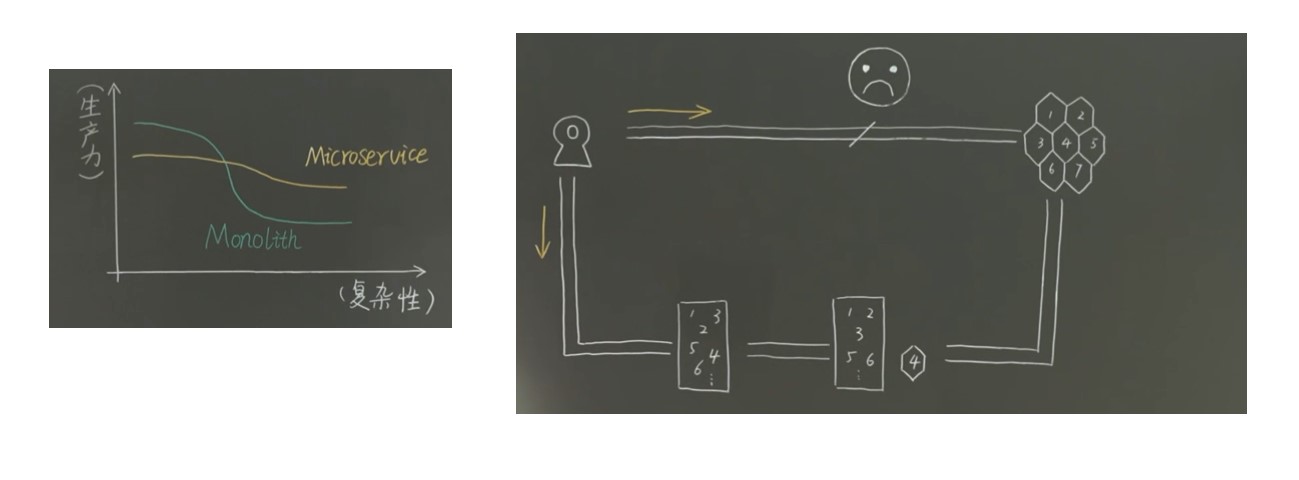 (生产力)
Microservice
Monolith
(复杂性)
1 2
3 4 5
6 7
1 3
2
5 4
6 ⋮
1 2
3
5 6
⋮
4